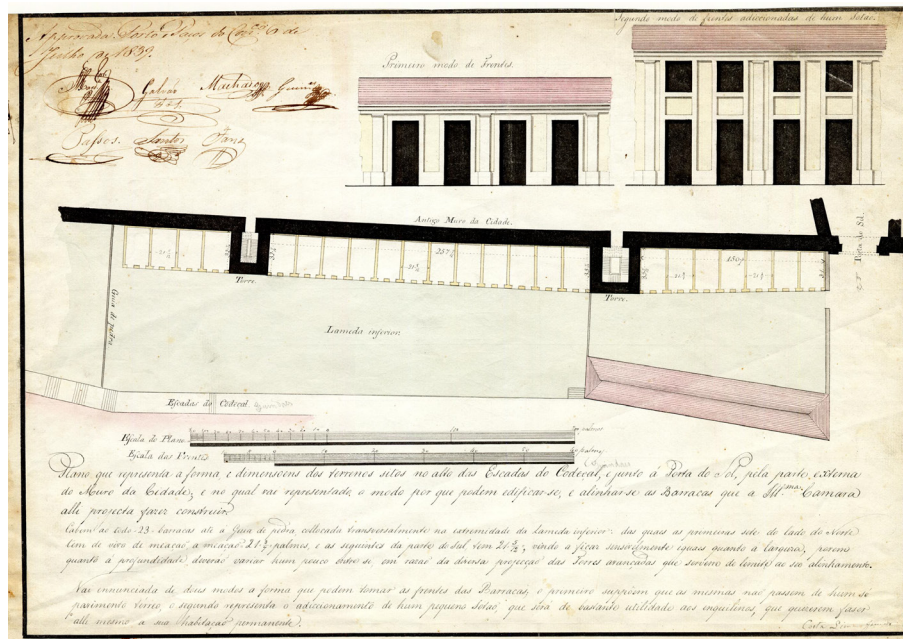 Approvada. Porto e Paços do Conc.º 6 de
Julho de 1839.
Galvão
Machado
Guim.es
Passos.
Santos
Faria
Primeiro modo de Frentes.
Segundo modo de frentes addiccionadas de hum Sotao.
Antigo Muro da Cidade.
Torre.
Torre.
Porta do Sol.
Guia de pedra
Lameda inferior.
Escadas do Codeçal.
Escala do Plano
palmos
Escala das Frentes
palmos
Plano que representa a forma, e dimensoens dos terrenos sitos no alto das Escadas do Codeçal, e junto á Porta do Sol, pela parte externa
do Muro da Cidade; e no qual vai representado, o modo por que podem edificar-se, e alinhar-se as Barracas que a Ill.ma Camara
alli projecta fazer construir.
Cabem ao todo 23 barracas até á Guia de pedra, collocada transversalmente na extremidade da Lameda inferior: das quaes as primeiras sete do lado do Norte
tem de vivo de meação a meação 21 ½ palmos, e as seguintes da parte do Sul tem 21 5/12, vindo a ficar sensivelmente iguaes quanto á largura, porem
quanto á profundidade deverão variar hum pouco entre si, em razão da diversa projecção das Torres avançadas que servem de limite ao seo alinhamento.
Vai ennunciada de dous modos a forma que podem tomar as frentes das Barracas, o primeiro suppoem que as mesmas não passem de hum só
pavimento terreo, o segundo representa o addiccionamento de hum pequeno Sotao, que será de bastante utilidade aos enquilinos, que quizerem fazer
alli mesmo a sua habitação permanente.
Costa Lima